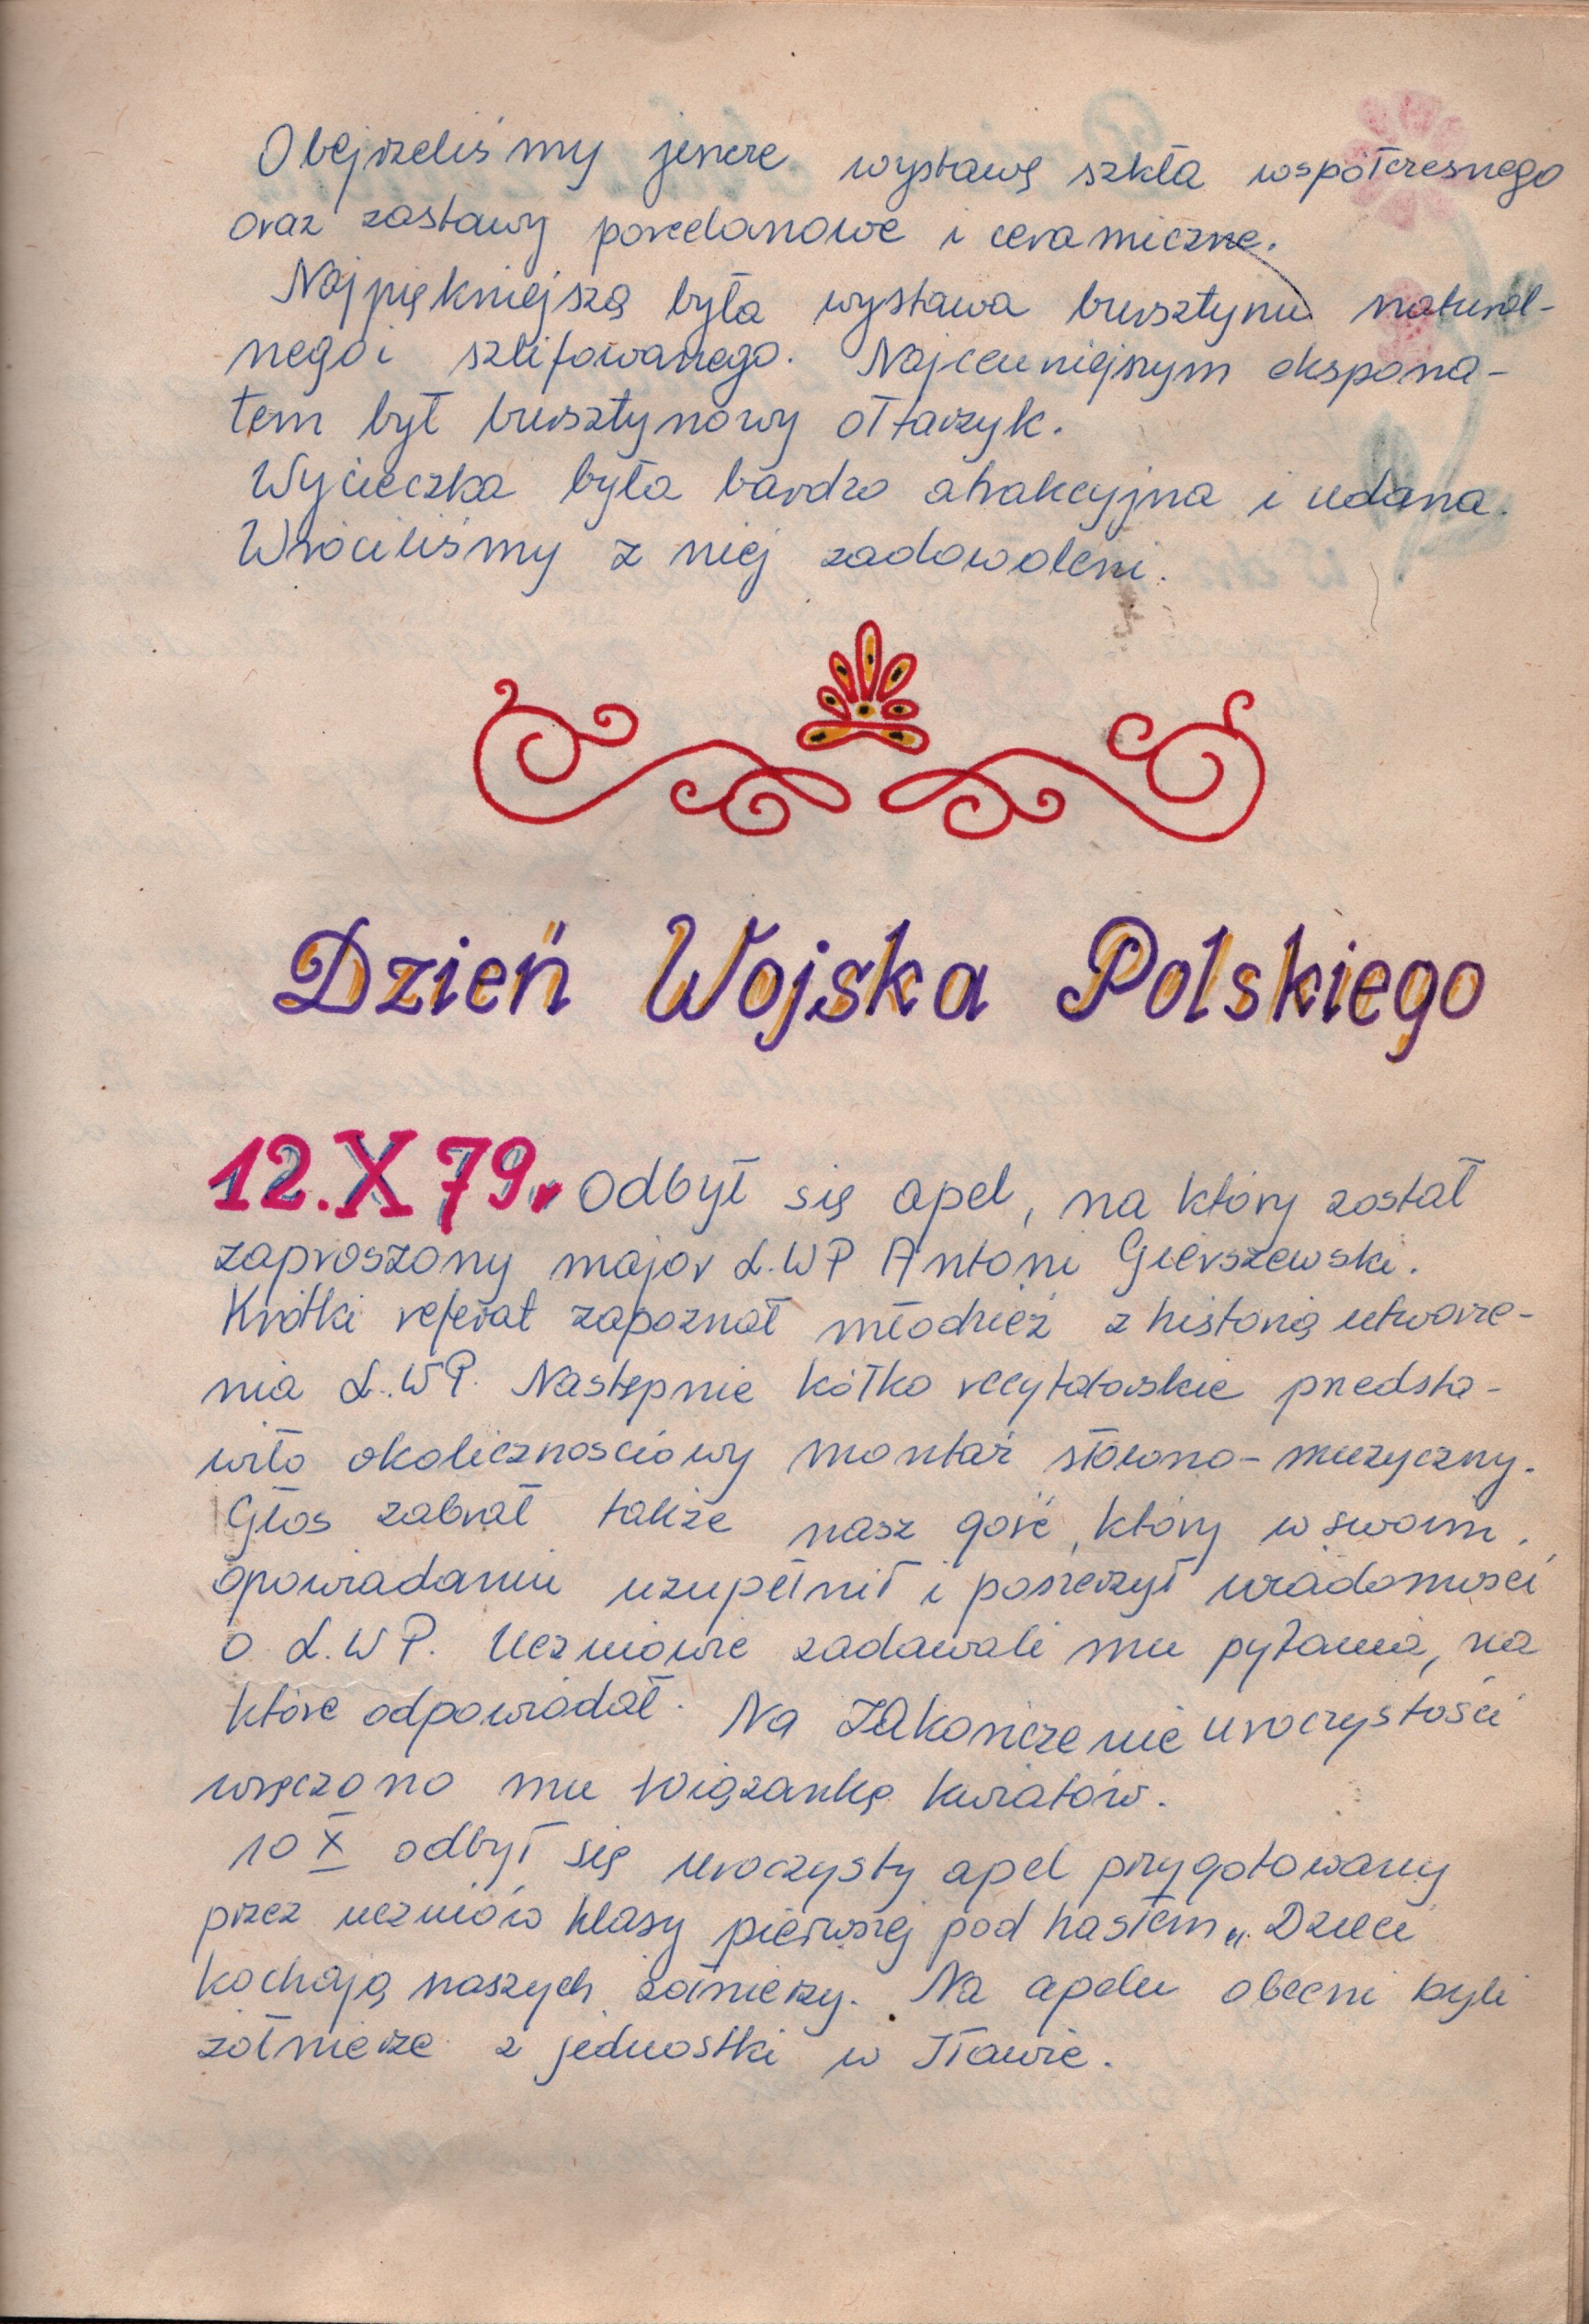 Obejrzeliśmy jeszcze wystawę szkła współczesnego
oraz zastawy porcelanowe i ceramiczne.
Najpiękniejszą była wystawa bursztynu natural-
nego i szlifowanego. Najcenniejszym ekspona-
tem był bursztynowy ołtarzyk.
Wycieczka była bardzo atrakcyjna i udana.
Wróciliśmy z niej zadowoleni.
Dzień Wojska Polskiego
12.X 79r odbył się apel, na który został
zaproszony major L.WP Antoni Gierszewski.
Krótki referat zapoznał młodzież z historią utworze-
nia L.WP. Następnie kółko recytatorskie przedsta-
wiło okolicznościowy montaż słowno-muzyczny.
Głos zabrał także nasz gość, który w swoim
opowiadaniu uzupełnił i poszerzył wiadomości
o L.WP. Uczniowie zadawali mu pytania, na
które odpowiadał. Na zakończenie uroczystości
wręczono mu wiązankę kwiatów.
10 X odbył się uroczysty apel przygotowany
przez uczniów klasy pierwszej pod hasłem „Dzieci
kochają naszych żołnierzy. Na apelu obecni byli
żołnierze z jednostki w Iławie.